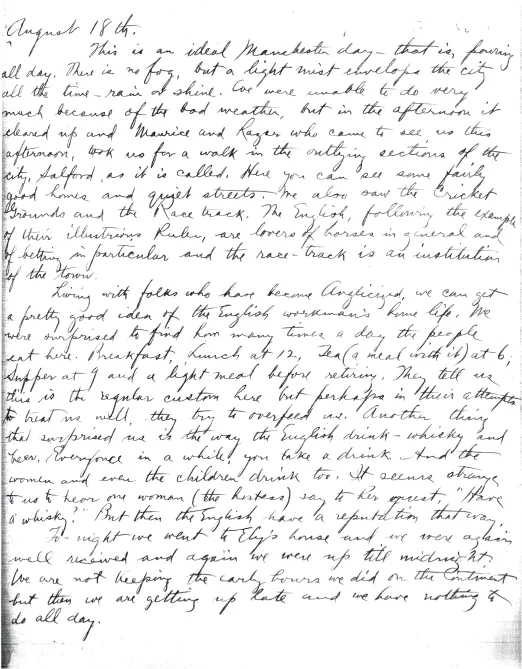 August 18th.
This is an ideal Manchester day - that is, pouring
all day. There is no fog, but a light mist envelops the city
all the time - rain or shine. We were unable to do very
much because of the bad weather, but in the afternoon it
cleared up and Maurice and who came to see us this
afternoon, took us for a walk in the outlying sections of the
city, Salford, as it is called. Here you can see some fairly
good homes and quiet streets. We also saw the Cricket
Grounds and the Race track. The English, following the example
of their illustrious Ruler, are lovers of horses in general and
of betting in particular and the race-track is an institution
of the town.
Living with folks who have become Anglicized, we can get
a pretty good idea of the English workman's home life. We
were surprised to find how many times a day the people
eat here. Breakfast, Lunch at 12, Tea (a meal with it) at 6,
Supper at 9 and a light meal before retiring. They tell us
this is the regular custom here but perhaps in their attempts
to treat us well, they try to overfeed us. Another thing
that surprised us is the way the English drink - whisky and
beer. Everyonce in a while, you take a drink - And the
women and even the children drink too. It seems strange
to us to hear one woman (the hostess) say to her guest, "Have
a whisky?" But then the English have a reputation that way.
To-night we went to house and we were again
well received and again we were up till midnight.
We are not keeping the early hours we did on the Continent
but then we are getting up late and we have nothing to
do all day.